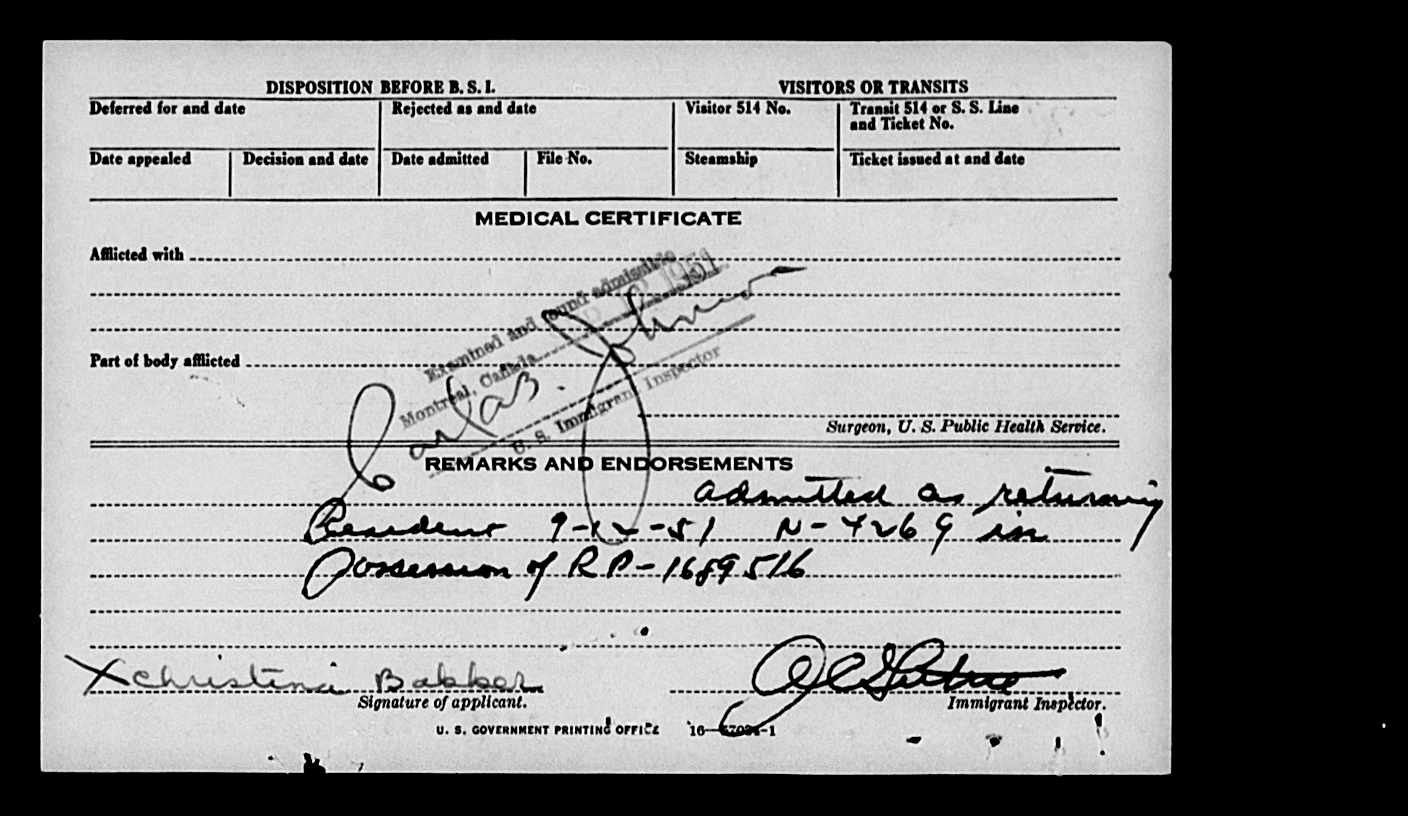 DISPOSITION BEFORE B. S. I.
VISITORS OR TRANSITS
Deferred for and date
Rejected as and date
Visitor 514 No.
Transit 514 or S. S. Line
and Ticket No.
Date appealed
Decision and date
Date admitted
File No.
Steamship
Ticket issued at and date
MEDICAL CERTIFICATE
Afflicted with
Examined and found admissible
Montreal, Canada 1951
U. S. Immigrant Inspector
Part of body afflicted
Surgeon, U. S. Public Health Service.
REMARKS AND ENDORSEMENTS
admitted as returning
Resident 9-12-51 N-4269 in
possession of RP-1689516
X Christina Bakker
Signature of applicant.
Immigrant Inspector.
U. S. GOVERNMENT PRINTING OFFICE 16—